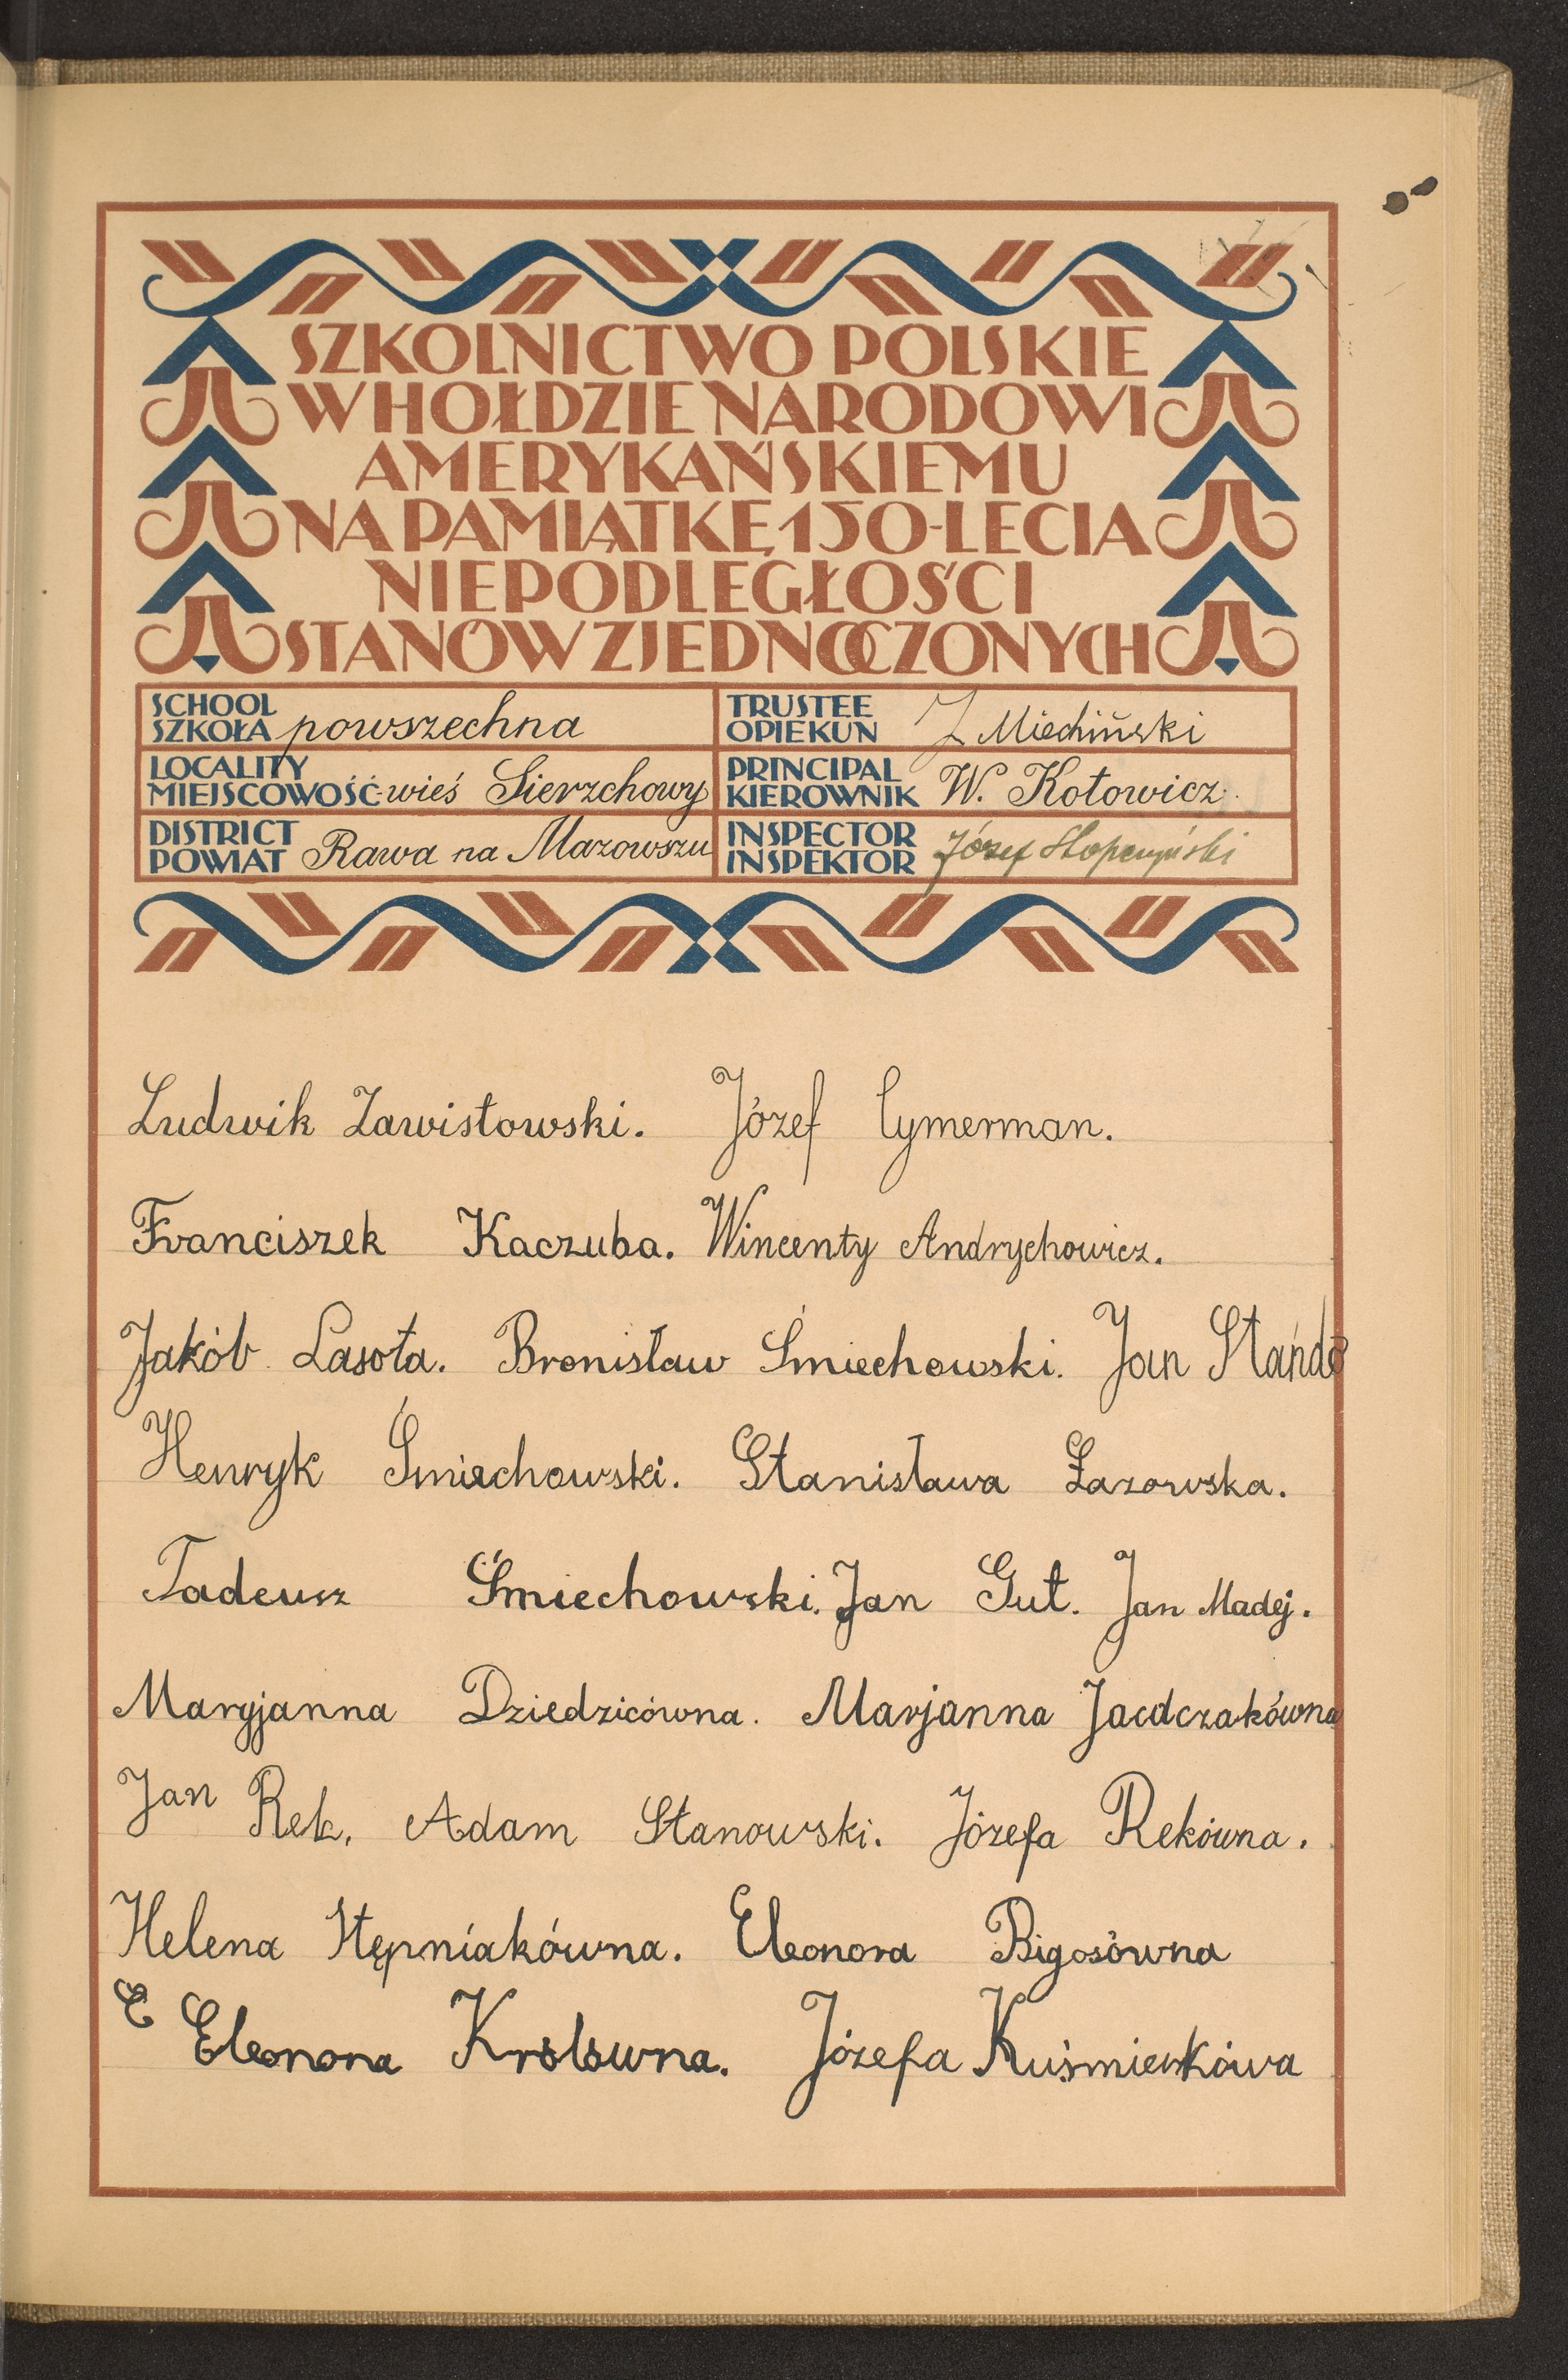 SZKOLNICTWO POLSKIE
W HOŁDZIE NARODOWI
AMERYKAŃSKIEMU
NA PAMIĄTKĘ 150-LECIA
NIEPODLEGŁOŚCI
STANÓW ZJEDNOCZONYCH
SCHOOL
SZKOŁA powszechna
TRUSTEE
OPIEKUN J Miechiński
LOCALITY
MIEJSCOWOŚĆ-wieś Sierzchowy
PRINCIPAL
KIEROWNIK W. Kotowicz.
DISTRICT
POWIAT Rawa na Mazowszu
INSPECTOR
INSPEKTOR Józef
Ludwik Zawistowski. Józef Cymerman.
Franciszek Kaczuba. Wincenty Andrychowicz.
Jakób Lasota. Bronisław Śmiechowski. Jan Stańdo
Henryk Śmiechowski. Stanisława Łazowska.
Tadeusz Śmiechowski. Jan Gut. Jan Madej.
Maryjanna Dziedzicówna. Marjanna Jacdczakówna
Jan Rek. Adam Stanowski. Józefa Rekówna.
Helena Stępniakówna. Eleonora Bigosówna
E Eleonora Królówna. Józefa